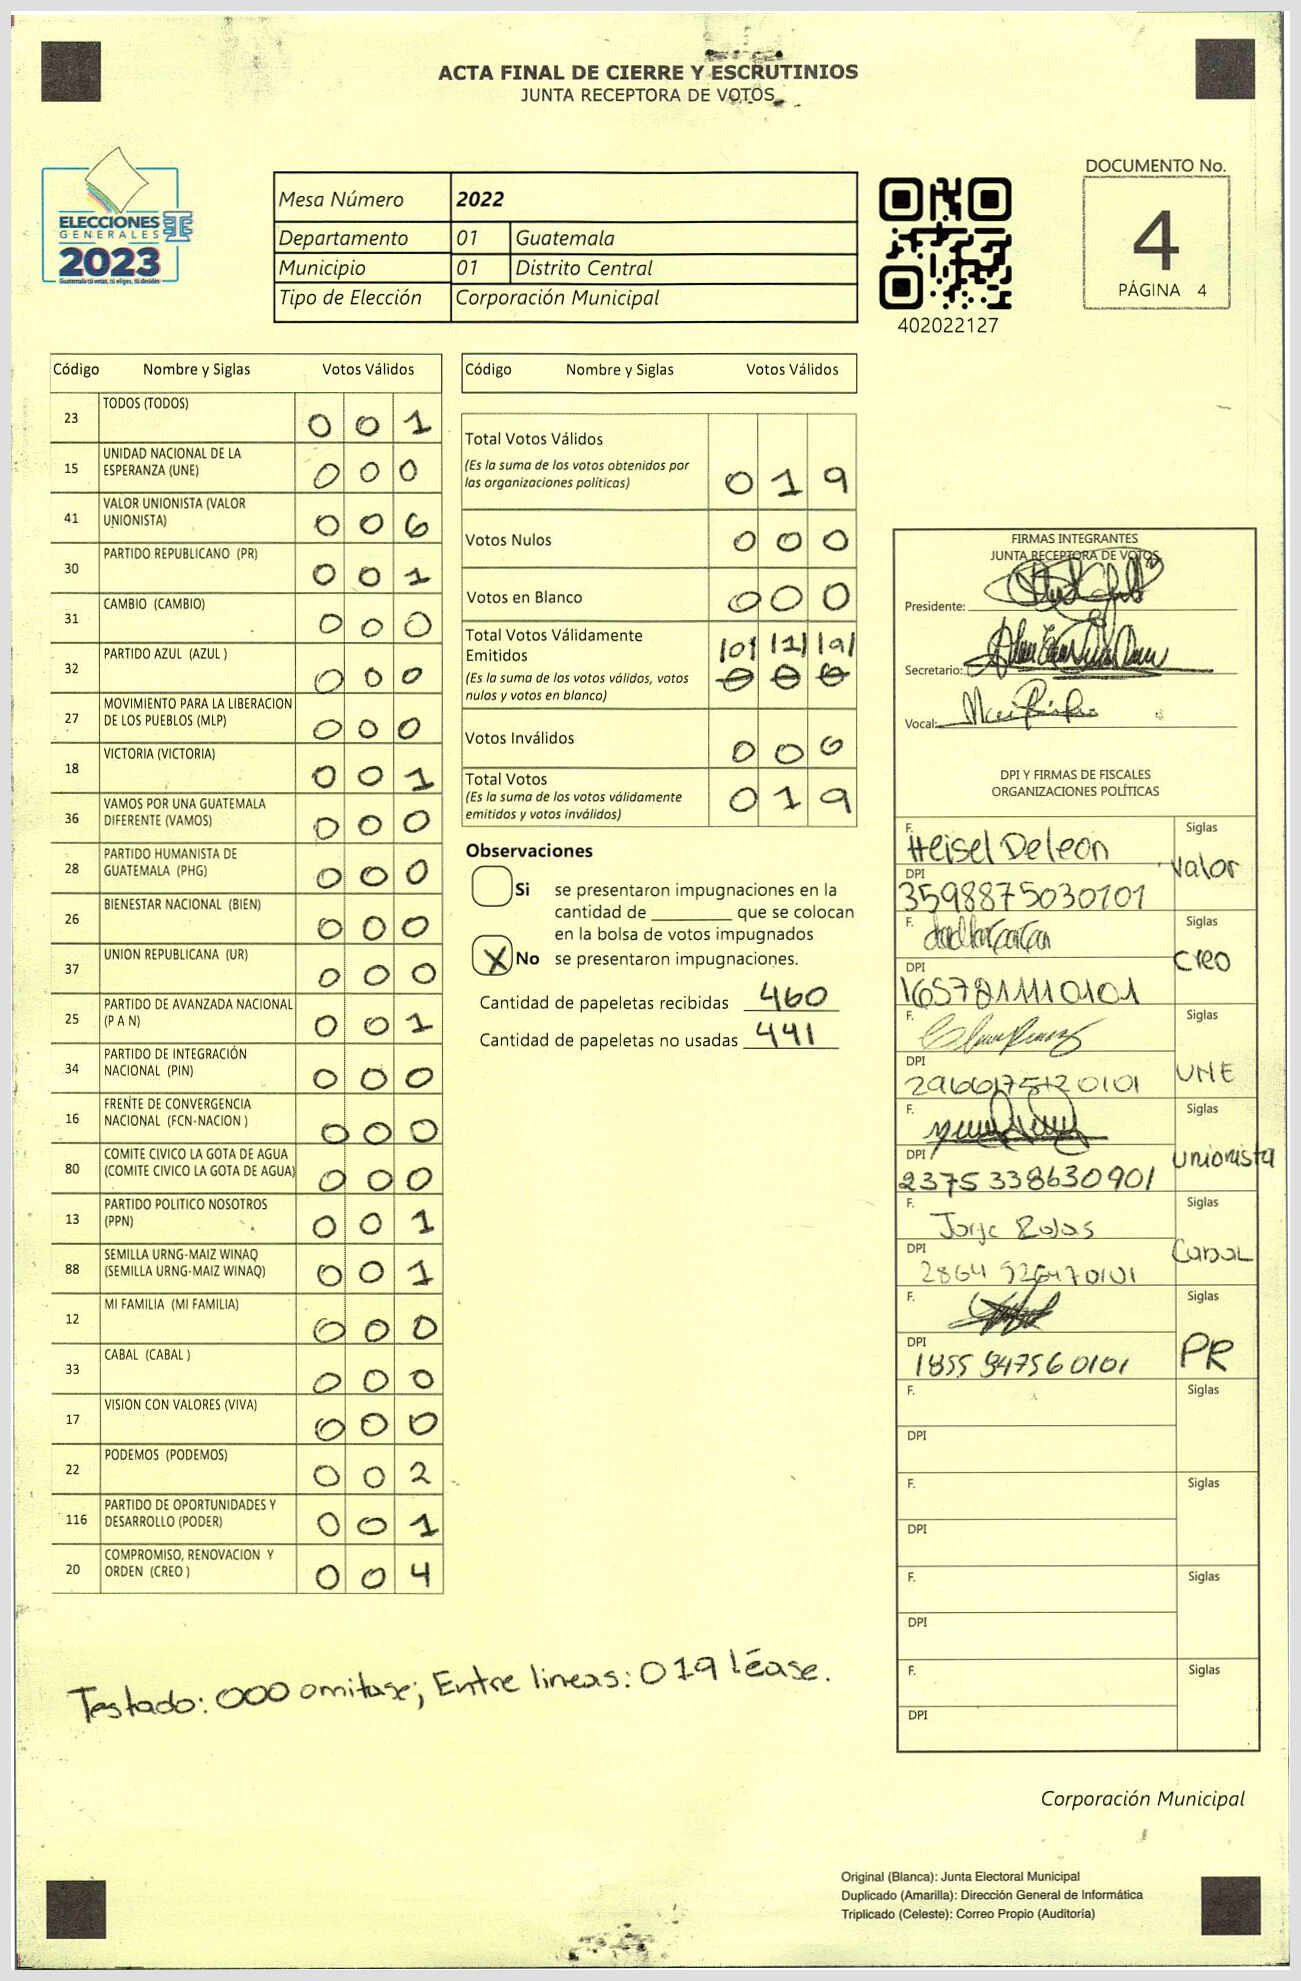 ACTA FINAL DE CIERRE Y ESCRUTINIOS
JUNTA RECEPTORA DE VOTOS
ELECCIONES
GENERALES
2023
Guatemala tú votas, tú eliges, tú decides
Mesa Número 2022
Departamento 01 Guatemala
Municipio 01 Distrito Central
Tipo de Elección Corporación Municipal
402022127
DOCUMENTO No.
4
PÁGINA 4
Código Nombre y Siglas Votos Válidos
23 TODOS (TODOS) 0 0 1
15 UNIDAD NACIONAL DE LA
ESPERANZA (UNE) 0 0 0
41 VALOR UNIONISTA (VALOR
UNIONISTA) 0 0 6
30 PARTIDO REPUBLICANO (PR) 0 0 1
31 CAMBIO (CAMBIO) 0 0 0
32 PARTIDO AZUL (AZUL ) 0 0 0
27 MOVIMIENTO PARA LA LIBERACION
DE LOS PUEBLOS (MLP) 0 0 0
18 VICTORIA (VICTORIA) 0 0 1
36 VAMOS POR UNA GUATEMALA
DIFERENTE (VAMOS) 0 0 0
28 PARTIDO HUMANISTA DE
GUATEMALA (PHG) 0 0 0
26 BIENESTAR NACIONAL (BIEN) 0 0 0
37 UNION REPUBLICANA (UR) 0 0 0
25 PARTIDO DE AVANZADA NACIONAL
(P A N) 0 0 1
34 PARTIDO DE INTEGRACIÓN
NACIONAL (PIN) 0 0 0
16 FRENTE DE CONVERGENCIA
NACIONAL (FCN-NACION ) 0 0 0
80 COMITE CIVICO LA GOTA DE AGUA
(COMITE CIVICO LA GOTA DE AGUA) 0 0 0
13 PARTIDO POLITICO NOSOTROS
(PPN) 0 0 1
88 SEMILLA URNG-MAIZ WINAQ
(SEMILLA URNG-MAIZ WINAQ) 0 0 1
12 MI FAMILIA (MI FAMILIA) 0 0 0
33 CABAL (CABAL ) 0 0 0
17 VISION CON VALORES (VIVA) 0 0 0
22 PODEMOS (PODEMOS) 0 0 2
116 PARTIDO DE OPORTUNIDADES Y
DESARROLLO (PODER) 0 0 1
20 COMPROMISO, RENOVACION Y
ORDEN (CREO ) 0 0 4
Código Nombre y Siglas Votos Válidos
Total Votos Válidos
(Es la suma de los votos obtenidos por
las organizaciones políticas) 0 1 9
Votos Nulos 0 0 0
Votos en Blanco 0 0 0
Total Votos Válidamente
Emitidos |0| |1| |9|
(Es la suma de los votos válidos, votos 0 0 0
nulos y votos en blanco)
Votos Inválidos 0 0 0
Total Votos
(Es la suma de los votos válidamente
emitidos y votos inválidos) 0 1 9
Observaciones
Si se presentaron impugnaciones en la
cantidad de ________ que se colocan
en la bolsa de votos impugnados
X No se presentaron impugnaciones.
Cantidad de papeletas recibidas 460
Cantidad de papeletas no usadas 441
FIRMAS INTEGRANTES
JUNTA RECEPTORA DE VOTOS
Presidente:
Secretario:
Vocal:
DPI Y FIRMAS DE FISCALES
ORGANIZACIONES POLÍTICAS
F. Heisel Deleon Siglas
DPI Valor
3598875030101
F. Siglas
DPI Creo
1657821110101
F. Siglas
DPI UNE
F. Siglas
DPI Unionista
2375338630901
F. Jorge Rojas Siglas
DPI Cabal
F. Siglas
DPI PR
1855947560101
F. Siglas
DPI
F. Siglas
DPI
F. Siglas
DPI
F. Siglas
DPI
Testado: 000 omitase; Entre lineas: 019 léase.
Corporación Municipal
Original (Blanca): Junta Electoral Municipal
Duplicado (Amarilla): Dirección General de Informática
Triplicado (Celeste): Correo Propio (Auditoría)